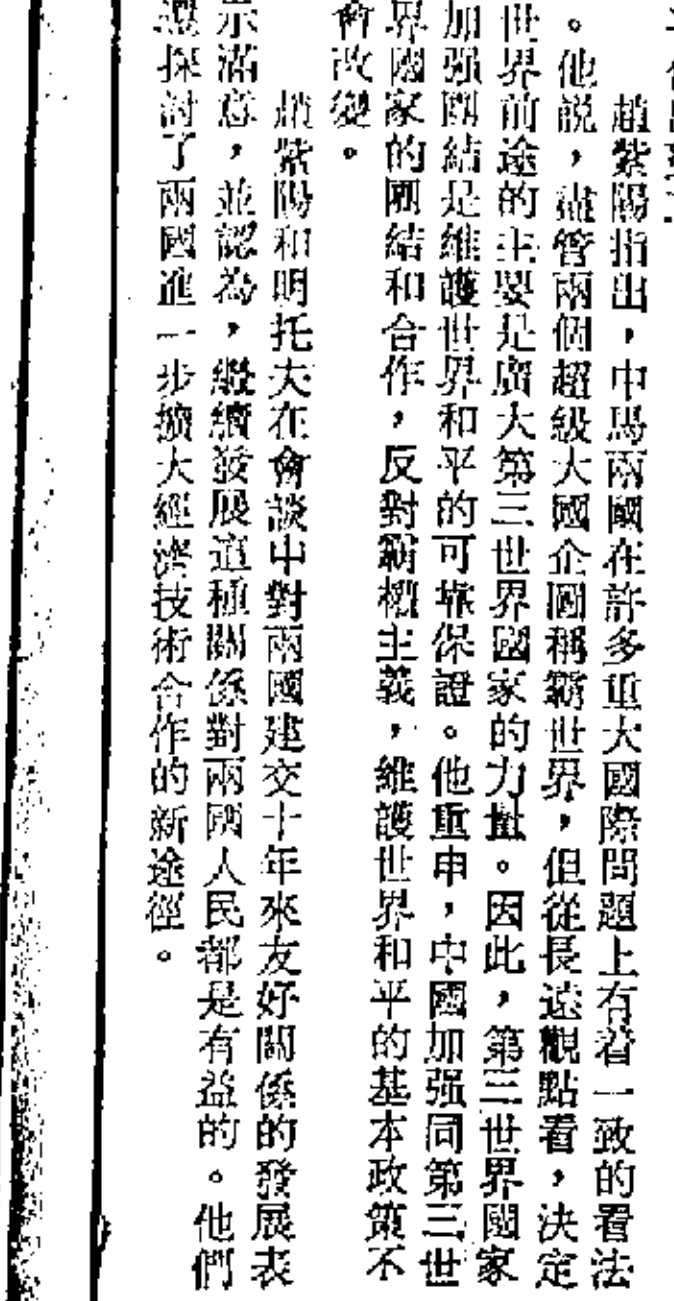 趙紫陽指出，中馬兩國在許多重大國際問題上有着一致的看法
。他説，儘管兩個超級大國企圖稱霸世界，但從長遠觀點看，決定
世界前途的主要是廣大第三世界國家的力量。因此，第三世界國家
加强團結是維護世界和平的可靠保證。他重申，中國加强同第三世
界國家的團結和合作，反對霸權主義，維護世界和平的基本政策不
會改變。
趙紫陽和明托夫在會談中對兩國建交十年來友好關係的發展表
示滿意，並認為，繼續發展這種關係對兩國人民都是有益的。他們
還探討了兩國進一步擴大經濟技術合作的新途徑。